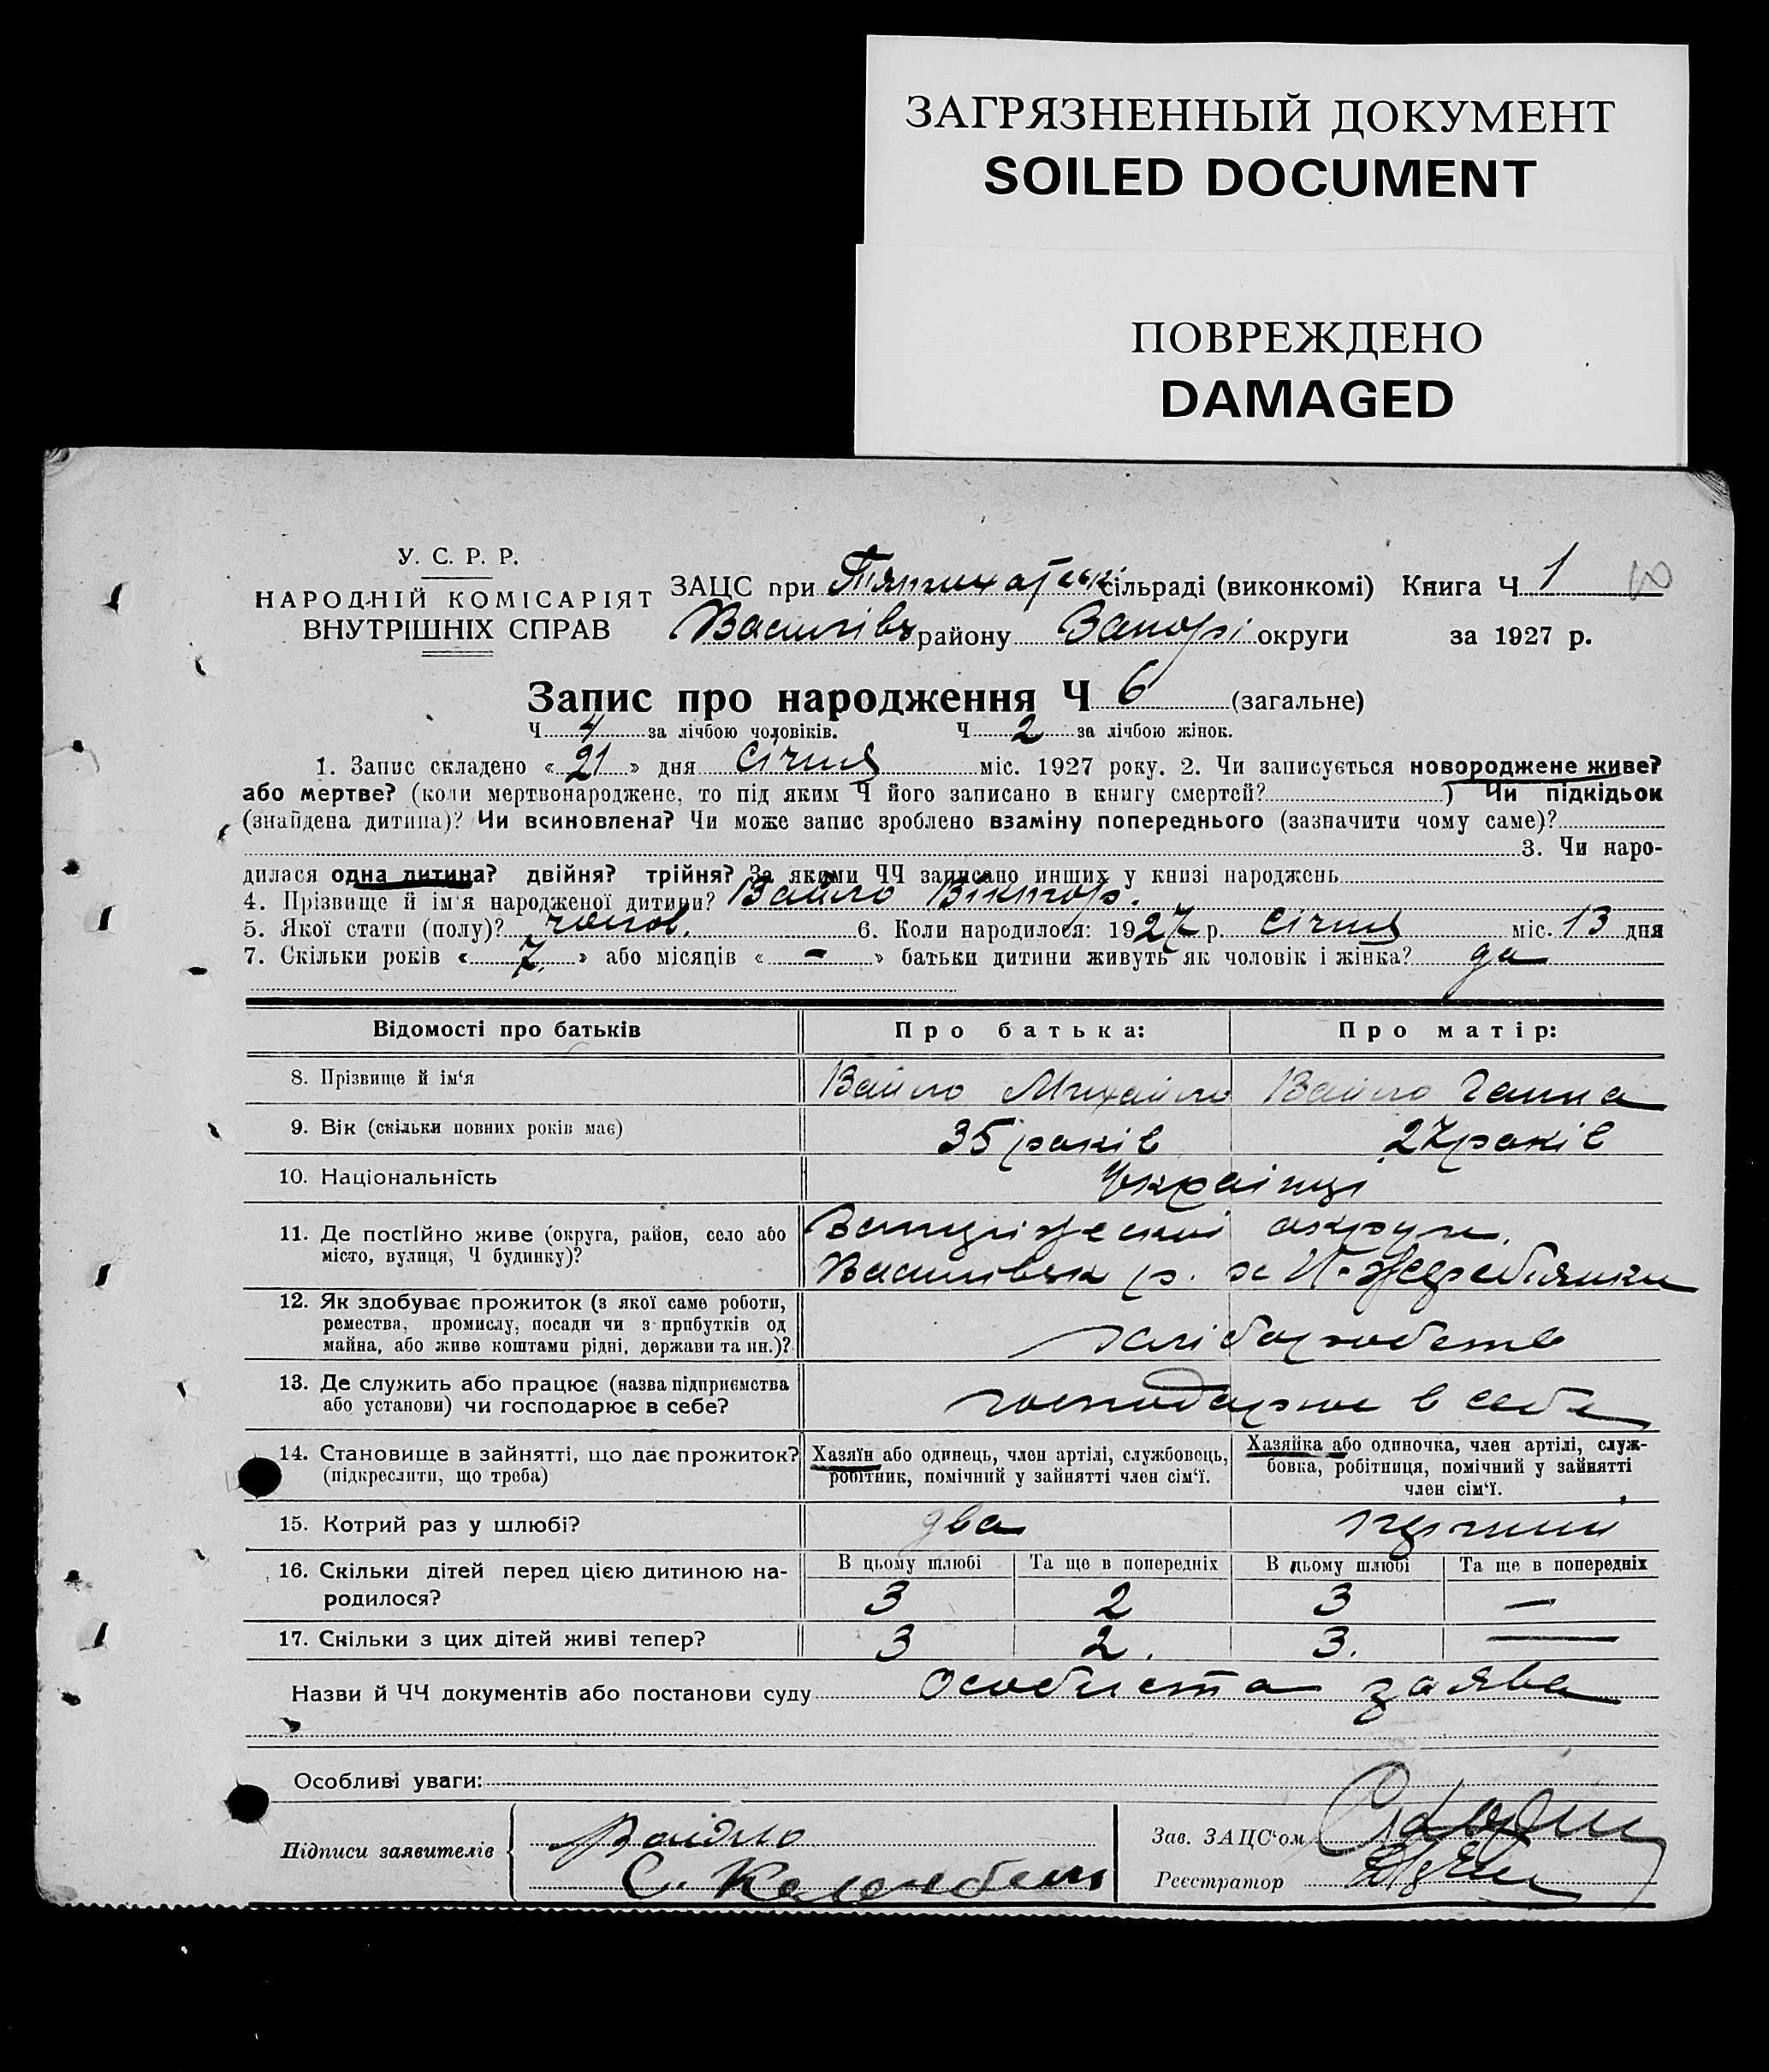 ЗАГРЯЗНЕННЫЙ ДОКУМЕНТ
SOILED DOCUMENT
ПОВРЕЖДЕНО
DAMAGED
У. С. Р. Р.
НАРОДНІЙ КОМІСАРІЯТ
ВНУТРІШНІХ СПРАВ
ЗАЦС при сільраді (виконкомі) Книга Ч 1
Василівськ району Запорі округи за 1927 р.
Запис про народження Ч 6 (загальне)
Ч 4 за лічбою чоловіків. Ч 2 за лічбою жінок.
1. Запис складено « 21 » дня січня міс. 1927 року. 2. Чи записується новороджене живе?
або мертве? (коли мертвонароджене, то під яким Ч його записано в книгу смертей? ) Чи підкідьок
(знайдена дитина)? Чи всиновлена? Чи може запис зроблено взаміну попереднього (зазначити чому саме)?
3. Чи наро-
дилася одна дитина? двійня? трійня? За якими ЧЧ записано инших у книзі народжень
4. Прізвище й ім'я народженої дитини? Вайло Віктор.
5. Якої стати (полу)? чолов. 6. Коли народилося: 1927 р. січня міс. 13 дня
7. Скільки років « 7. » або місяців « - » батьки дитини живуть як чоловік і жінка? да
Відомості про батьків Про батька: Про матір:
8. Прізвище й ім'я Вайло Михайло Вайло Ганна
9. Вік (скільки повних років має) 35 років 27 років
10. Національність Українці
11. Де постІйно живе (округа, район, село або
місто, вулиця, Ч будинку)?
12. Як здобуває прожиток (з якої саме роботи,
ремества, промислу, посади чи з прибутків од
майна, або живе коштами рідні, держави та ин.)?
хліборобств
13. Де служить або працює (назва підприємства
або установи) чи господарює в себе?
господарює в себе
14. Становище в зайнятті, що дає прожиток?
(підкреслити, що треба)
Хазяїн або одинець, член артілі, службовець,
робітник, помічний у зайнятті член сім'ї.
Хазяйка або одиночка, член артілі, служ-
бовка, робітниця, помічний у зайнятті
член сім'ї.
15. Котрий раз у шлюбі? два
16. Скільки дітей перед цією дитиною на-
родилося?
В цьому шлюбі Та ще в попередніх В цьому шлюбі Та ще в попередніх
3 2 3 —
17. Скільки з цих дітей живі тепер? 3 2. 3. —
Назви й ЧЧ документів або постанови суду Особиста заява
Особливі уваги:
Підписи заявителів
Зав. ЗАЦС'ом
Реєстратор